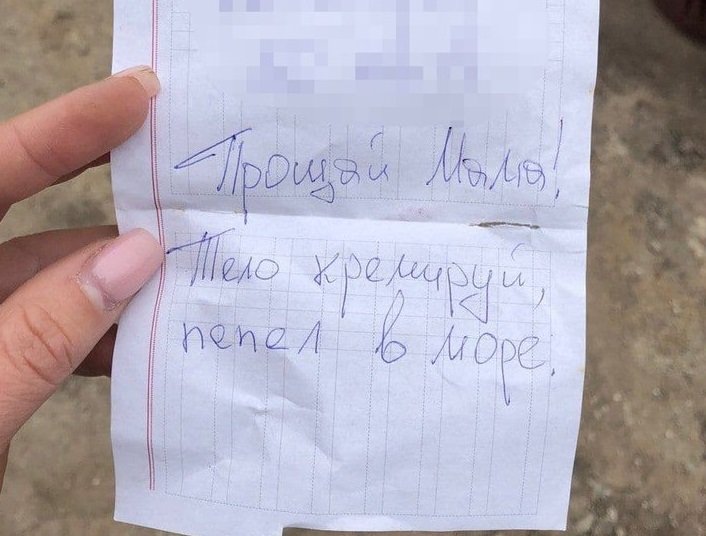 Прощай Мама!
Тело кремируй,
пепел в море.